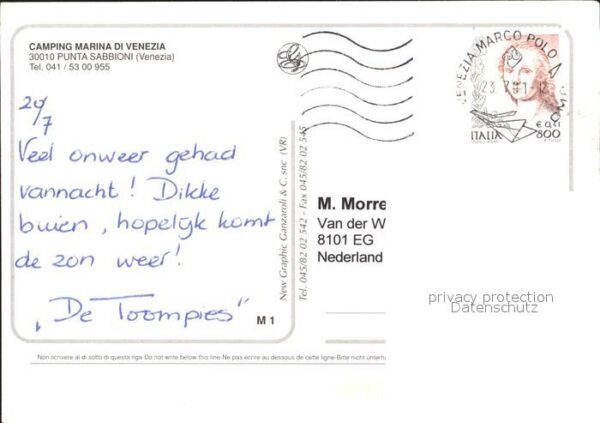 CAMPING MARINA DI VENEZIA
30010 PUNTA SABBIONI (Venezia)
Tel. 041 / 53 00 955
20/7
Veel onweer gehad
vannacht! Dikke
buien, hopelijk komt
de zon weer!
„De Toompies"
M 1
New Graphic Ganzaroli & C. snc (VR)
Tel. 045/82 02 542 - Fax 045/82 02 545
VENEZIA MARCO POLO
23 7 01-12
ITALIA
€ 0,41
800
M. Morre
Van der W
8101 EG
Nederland
privacy protection
Datenschutz
Non scrivere al di sotto di questa riga-Do not write below this line-Ne pas écrire au dessous de cette ligne-Bitte nicht unterha